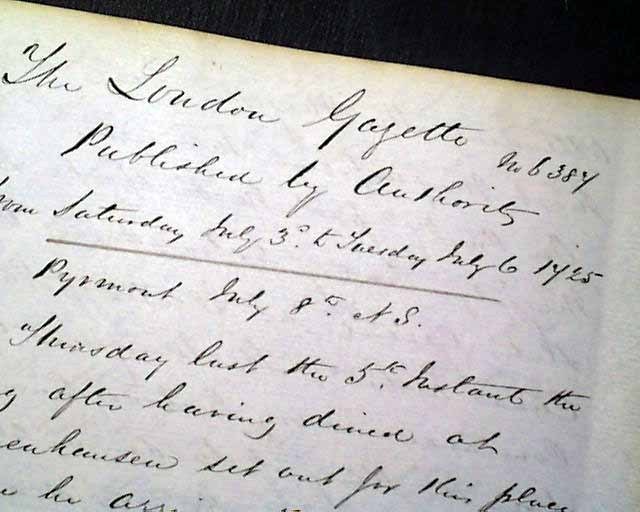 The London Gazette No 6387
Published by Authority
from Saturday July 3d. to Tuesday July 6 1725
Pyrmont July 8th. N S.
Thursday last the 5th. Instant the
after having dined at
set out for this place
he